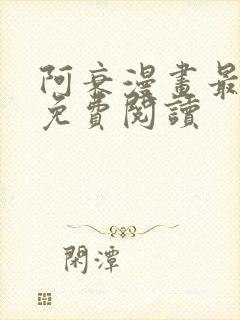 阿衰漫畫最
免費閱讀
閑潭